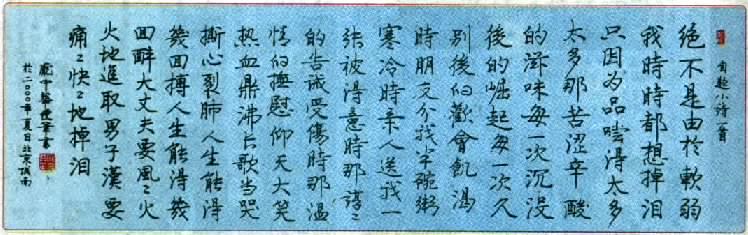 自题小诗一首
絕不是由於軟弱
我時時都想掉泪
只因為品嚐得太多
太多那苦澀辛酸
的滋味每一次沉没
後的崛起每一次久
別後的歡會飢渴
時朋友分我半碗粥
寒冷時亲人送我一
张被得意時那谆々
的告诫受傷時那温
情的撫慰仰天大笑
热血鼎沸长歌当哭
撕心裂肺人生能得
幾回搏人生能得幾
回醉大丈夫要風々火
火地進取男子漢要
痛々快々地掉泪
龐中華硬筆書
於二〇〇〇年夏日北京城南